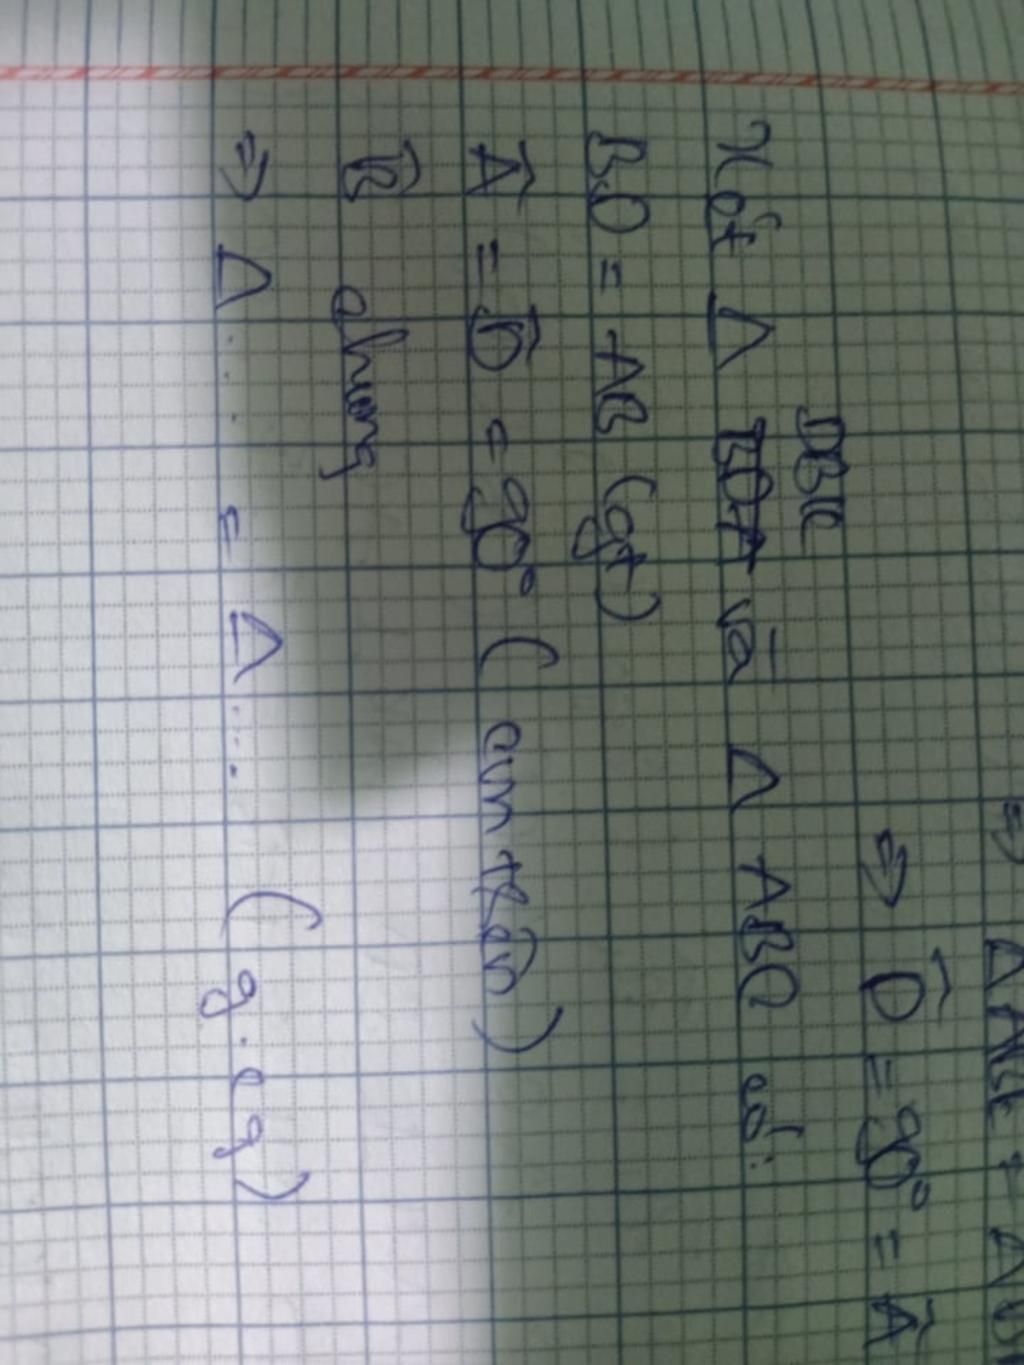 ⇒ ΔABE = ΔB
⇒ D̂ = 90° = Â
DBK
Xét Δ và Δ ABC có:
BD = AB (gt)
Â = D̂ = 90° (cm trên)
B̂ chung
⇒ Δ.... = Δ.... (g.c.g)